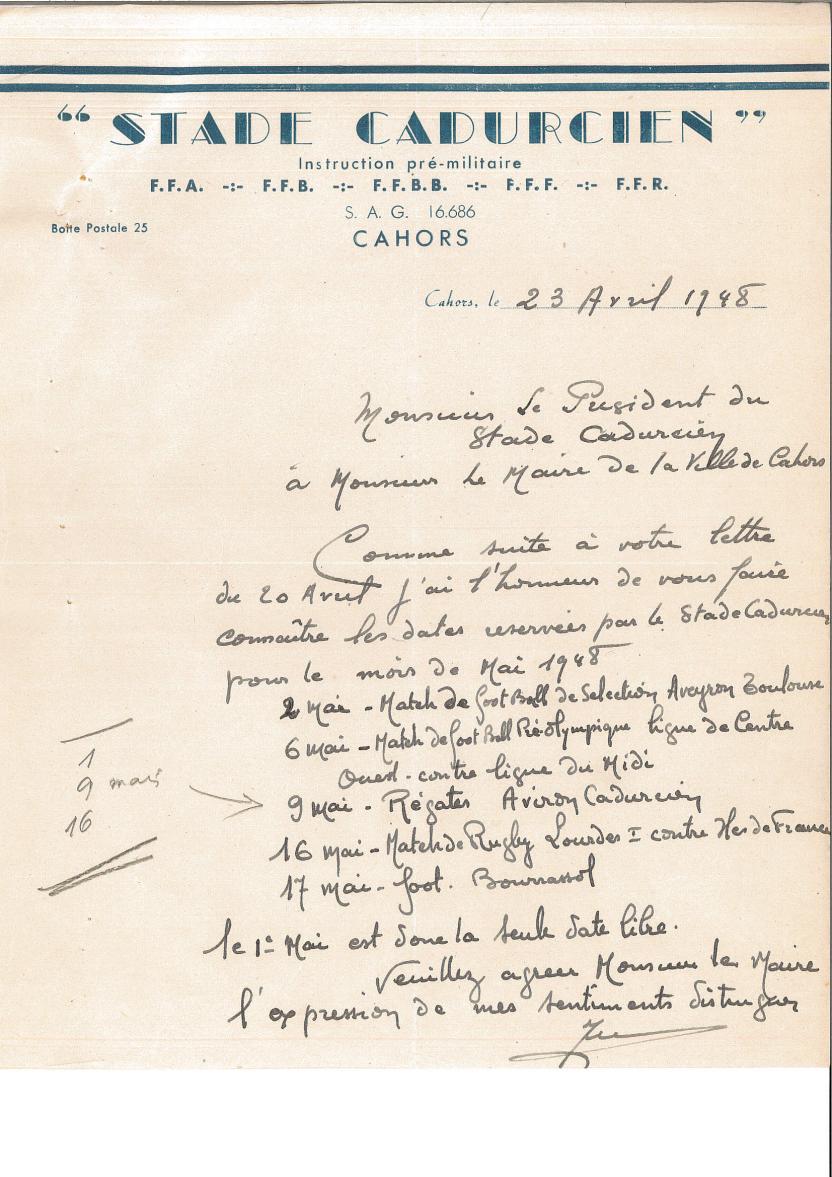 “ STADE CADURCIEN ”
Instruction pré-militaire
F.F.A. -:- F.F.B. -:- F.F.B.B. -:- F.F.F. -:- F.F.R.
S. A. G. 16.686
Boite Postale 25
CAHORS
Cahors, le 23 Avril 1948
Monsieur Le President du
Stade Cadurcien
à Monsieur Le Maire de la Ville de Cahors
Comme suite à votre lettre
du 20 Avril j'ai l'honneur de vous faire
connaître les dates reservées par le Stade Cadurcien
pour le mois de Mai 1948
2 Mai - Match de foot Ball de Selection Aveyron Toulouse
6 Mai - Match de foot Ball Pré-olympique ligue de Centre
Ouest - contre ligue du Midi
1
9 mai
16
9 Mai - Régates Aviron Cadurcien
16 Mai - Match de Rugby Lourdes I contre Iles de France
17 Mai - foot. Bournassol
le 1er Mai est donc la seule date libre.
Veuillez agreer Monsieur le Maire
l'expression de mes sentiments distingues